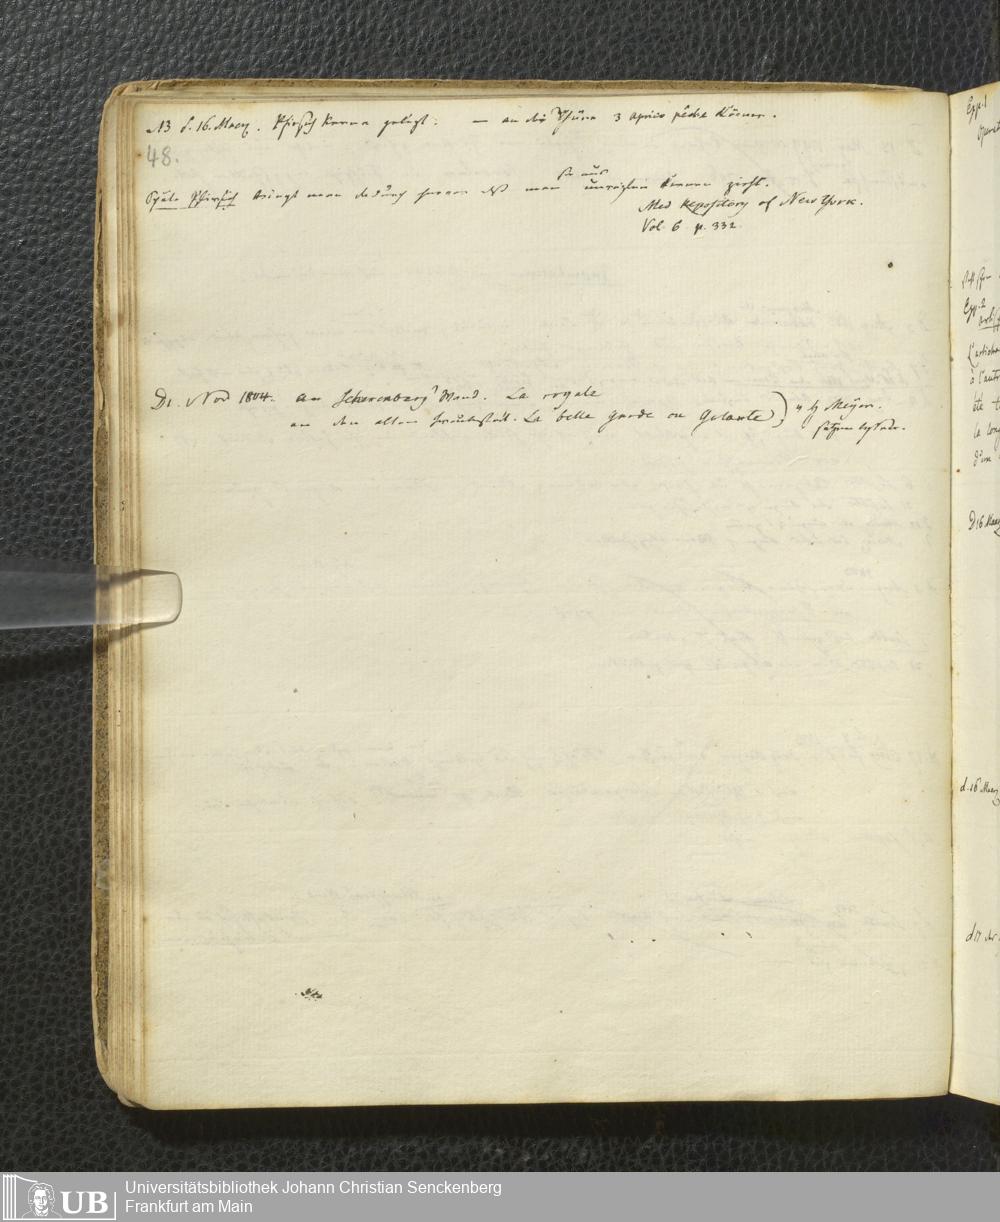 NB d. 16. Maerz. Pfirsich Kerne gelegt. — an die Thüre 3 aprico pêche Körner.
48.
Späte Pfirsich bringt man dadurch hervor daß man sie aus unreifen Kernen zieht.
Med Repository of New York.
Vol. 6 p. 332.
D 1. Nov 1804. an Scherenberg's Wand. La royale
an den alten La belle garde ou Galante) v H Meyer.
Egp. 1
Egp. 2
L'articha
à l'autr
été
la long
d'une
D 16 Maerz
d. 16 Maerz
d 17
UB
Universitätsbibliothek Johann Christian Senckenberg
Frankfurt am Main